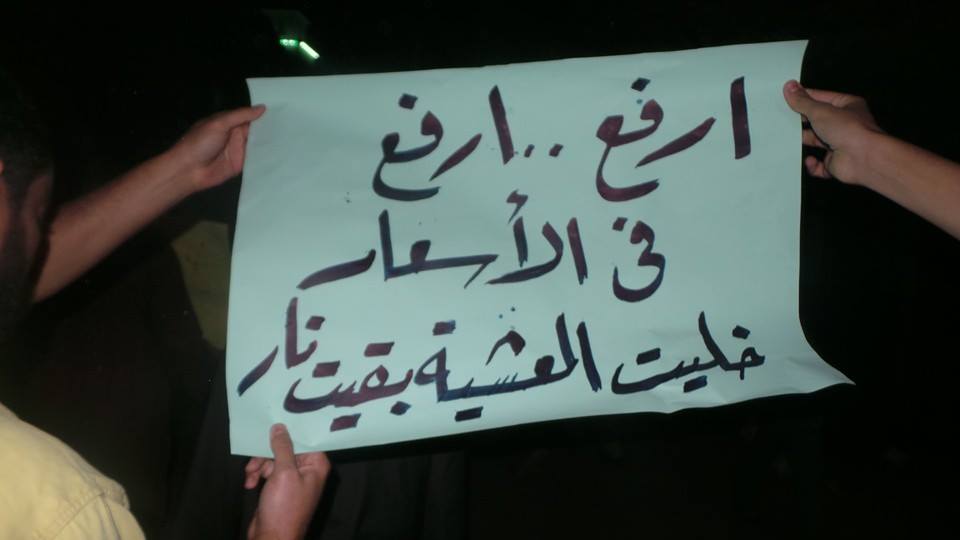 ارفع .. ارفع
فى الأسعار
خليت العشية بقيت نار